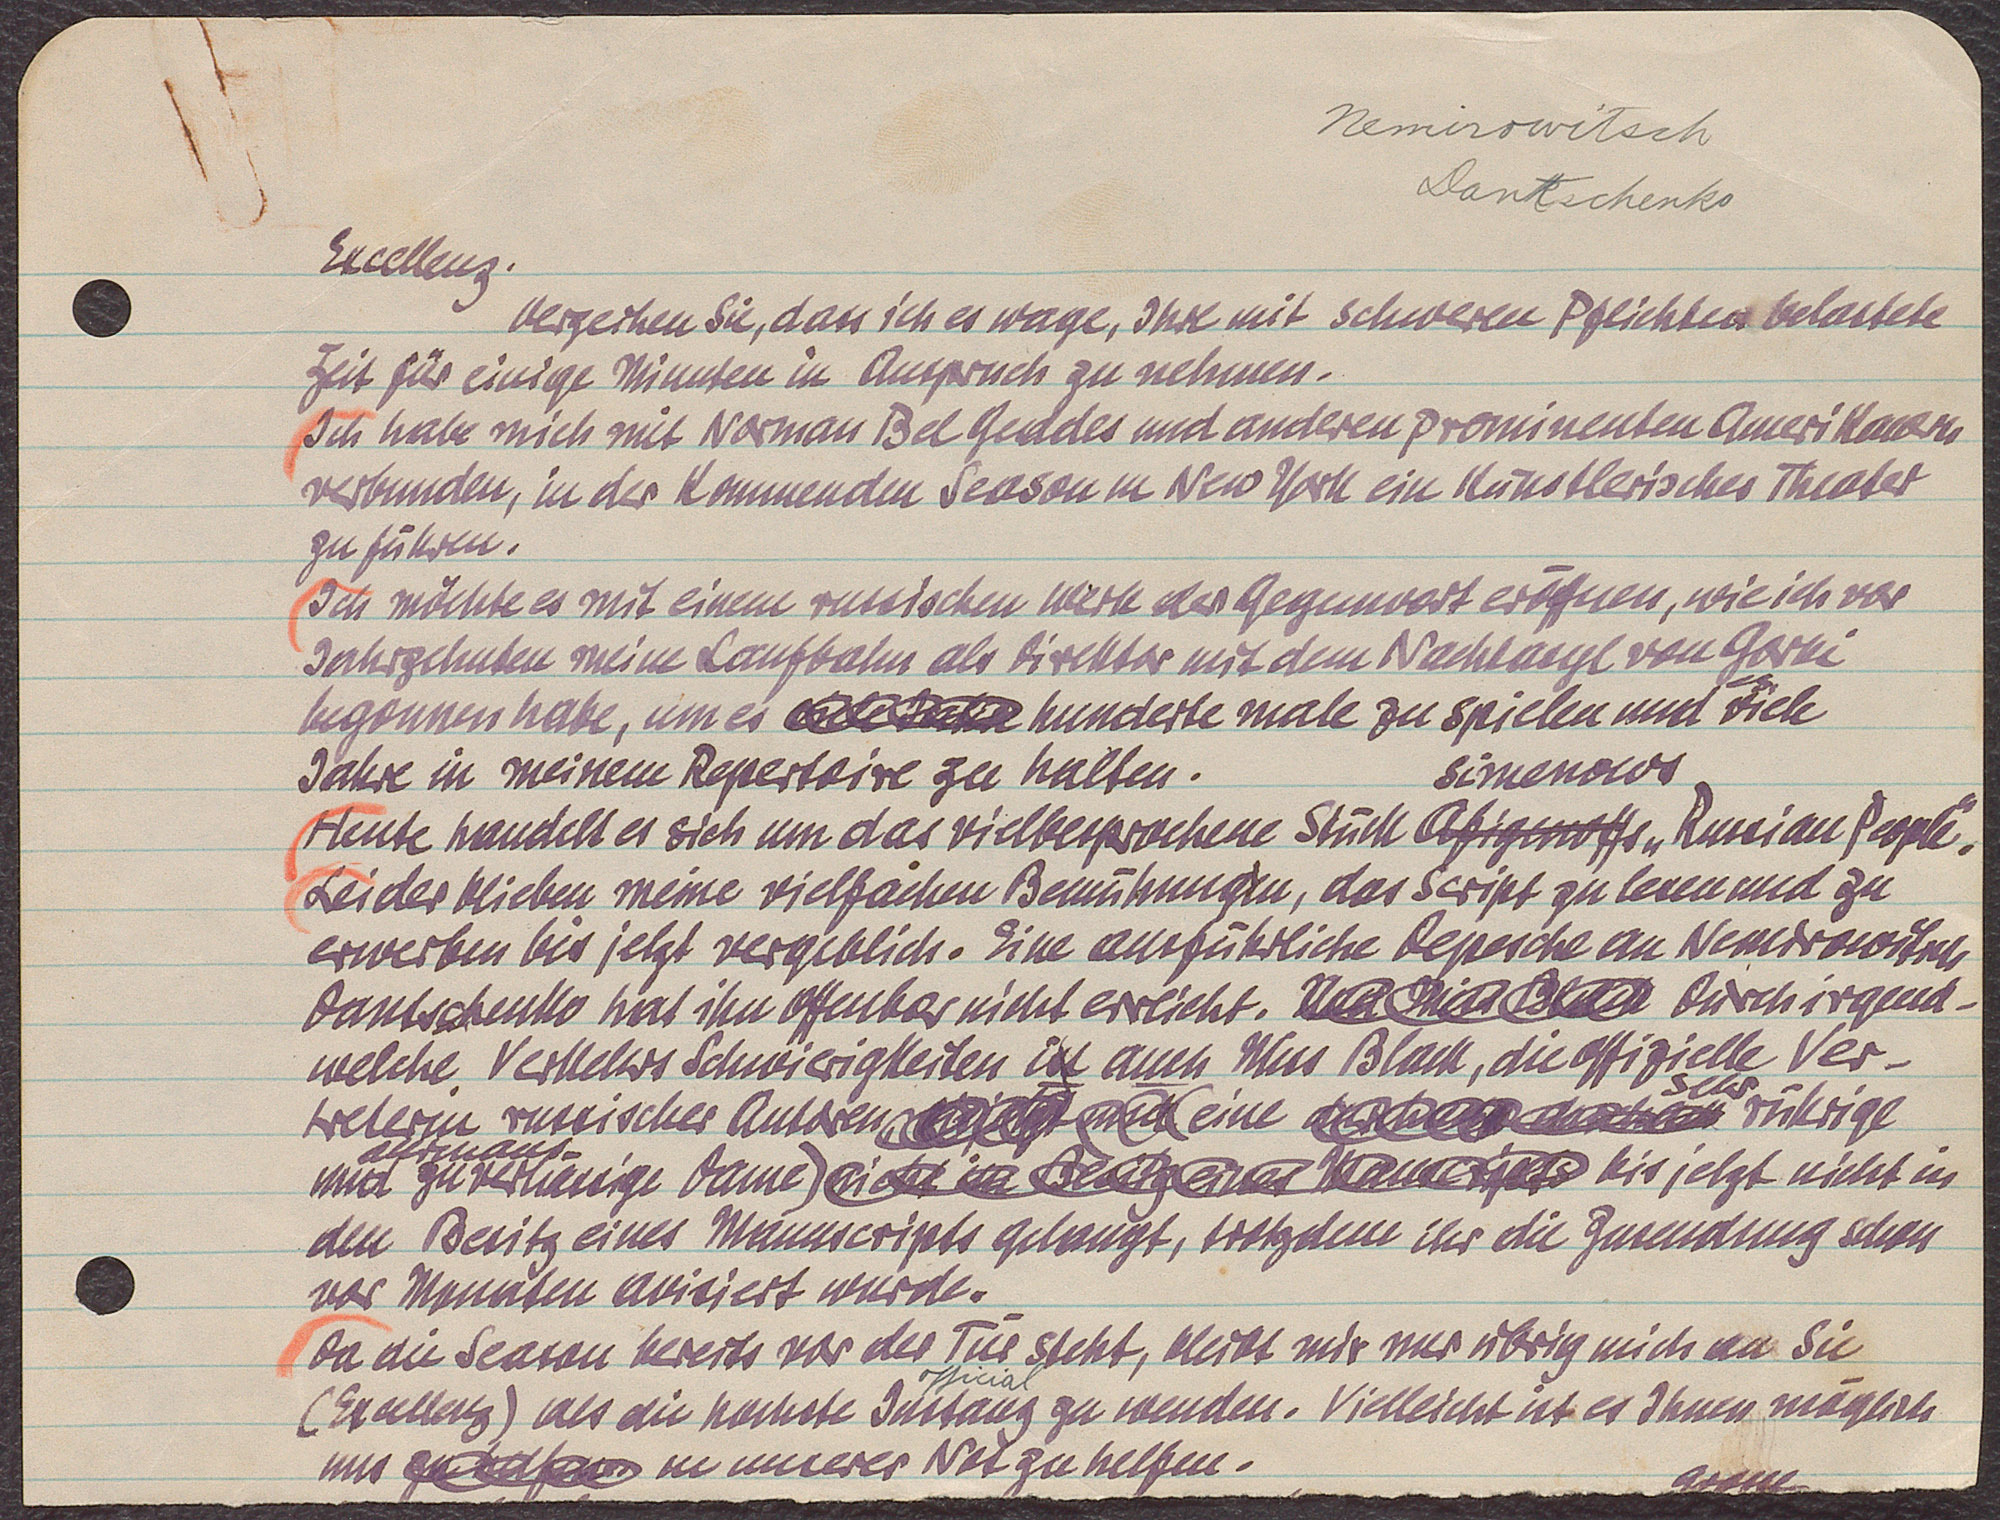 Nemirowitsch
Dantschenko
Excellenz.
Verzeihen Sie, dass ich es wage, Ihre mit schweren Pflichten belastete
Zeit für einige Minuten in Anspruch zu nehmen.
Ich habe mich mit Norman Bel Geddes und anderen prominenten Amerikanern
verbunden, in der kommenden Season in New York ein künstlerisches Theater
zu führen.
Ich möchte es mit einem russischen Werk der Gegenwart eröffnen, wie ich vor
Jahrzehnten meine Laufbahn als Direktor mit dem Nachtasyl von Gorki
begonnen habe, um es hunderte male zu spielen und viele
Jahre in meinem Repertoire zu halten.
Simenows
Heute handelt es sich um das vielbesprochene Stück Afigenoffs „Russian People".
Leider blieben meine vielfachen Bemühungen, das Script zu lesen und zu
erwerben bis jetzt vergeblich. Eine ausführliche Depesche an Nemirowitsch
Dantschenko hat ihn offenbar nicht erreicht. Durch irgend-
welche Verkehrs Schwierigkeiten ist auch Miss Black, die offizielle Ver-
sehr
treterin russischer Autoren (eine rührige
und zuverlässige Dame) bis jetzt nicht in
den Besitz eines Manuscripts gelangt, trotzdem ihr die Zusendung schon
vor Monaten avisiert wurde.
Da die Season bereits vor der Tür steht, bleibt mir nur übrig mich an Sie
official
(Excellenz) als die höchste Instanz zu wenden. Vielleicht ist es Ihnen möglich
uns in unserer Not zu helfen.